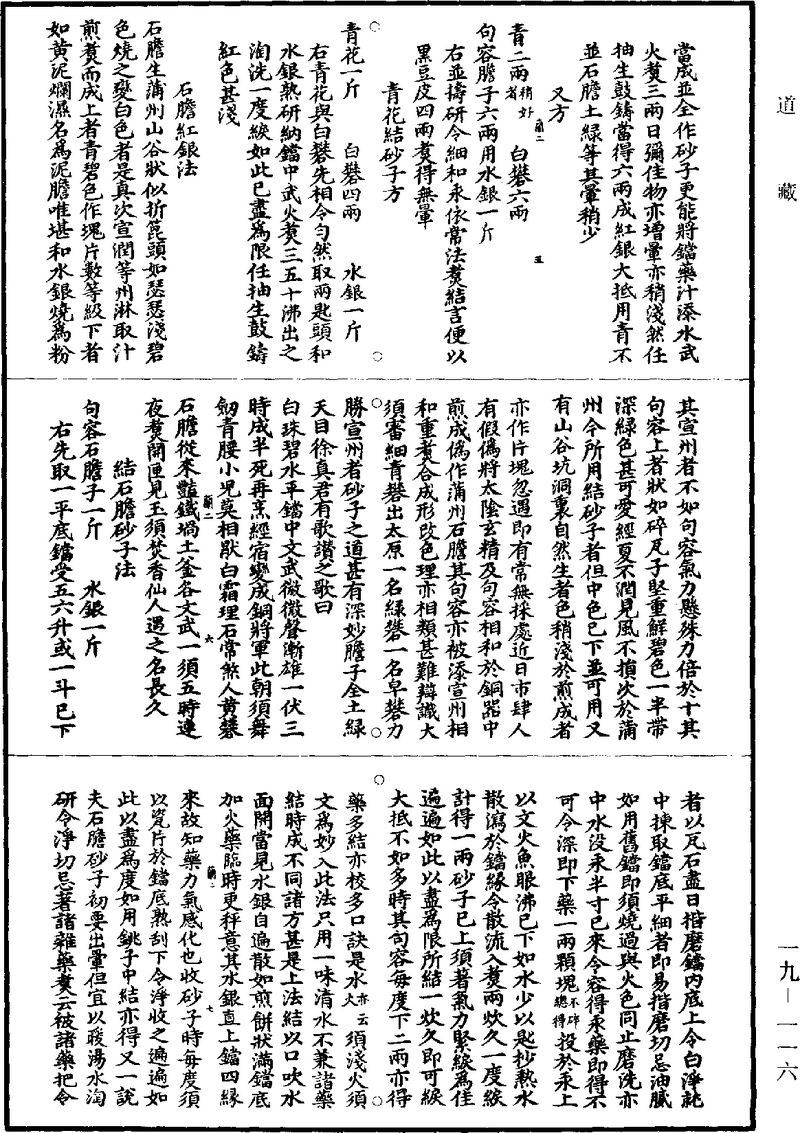 道藏
當成並全作砂子更能將鐺藥汁添水武
火煑三兩日彌佳物亦增暈亦稍淺然任
抽生鼓鑄當得六兩成紅銀大抵用青不
並石膽土綠等其暈稍少
又方
青二兩稍好者 白礬六兩
句容膽子六兩用水銀一斤
右並擣研令細和汞依常法煑結言便以
黑豆皮四兩煑得無暈
青花結砂子方
青花一斤 白礬四兩 水銀一斤
右青花與白礬先相令勻然取兩匙頭和
水銀熟研納鐺中武火煑三五十沸出之
淘洗一度緩如此已盡為限任抽生鼓鑄
紅色甚淺
石膽紅銀法
石膽生蒲州山谷狀似折箆頭如瑟瑟淺碧
色燒之變白色者是真次宣潤等州淋取汁
煎煑而成上者青碧色作塊片數等級下者
如黃泥爛濕名為泥膽唯堪和水銀燒為粉
其宣州者不如句容氣力懸殊力倍於十其
句容上者狀如碎瓦子堅重鮮碧色一半帶
深綠色甚可愛經夏不潤見風不損次於蒲
州今所用結砂子者但中色已下並可用又
有山谷坑洞裏自然生者色稍淺於煎成者
亦作片塊忽遇即有常無採處近日市肆人
有假偽將太陰玄精及句容相和於銅器中
煎成偽作蒲州石膽其句容亦被添宣州相
和重煑合成形改色理亦相類甚難辯識大
須審細青礬出太原一名綠礬一名皁礬力
勝宣州者砂子之道甚有深妙膽子全土綠
天目徐真君有歌讚之歌曰
白珠碧水平鐺中文武微微聲漸雄一伏三
時成半死再烹經宿變成銅將軍此朝須舞
劒青腰小児莫相猒白霜理石常煞人黃礬
石膽從來豔鐵堝土釜各文武一須五時連
夜煑開匣見玉須焚香仙人遇之名長久
結石膽砂子法
句容石膽子一斤 水銀一斤
右先取一平底鐺受五六升或一斗已下
者以瓦石盡日揩磨鐺內底上令白淨訖
中揀取鐺底平細者即易揩磨切忌油膩
如用舊鐺即須燒過與火色同止磨洗亦
中水沒汞半寸已來令容得汞藥即得不
可令深即下藥一兩顆塊不碎總得投於汞上
以文火魚眼沸已下如水少以匙抄熱水
散瀉於鐺緣令散流入煑兩炊久一度緩
計得一兩砂子已上須著氣力緊緩為佳
遍遍如此以盡為限所結一炊久即可緩
大抵不如多時其句容每度下二兩亦得
藥多結亦校多口訣是水亦云火須淺火須
文為妙入此法只用一味清水不兼諸藥
結時成不同諸方甚是上法結以口吹水
面開當見水銀自遍散如煎餅狀滿鐺底
加火藥臨時更秤意其水銀直上鐺四緣
來故知藥力氣感化也收砂子時每度須
以瓷片於鐺底熟刮下令淨收之遍遍如
此以盡為度如用銚子中結亦得又一說
夫石膽砂子初要出暈但宜以暖湯水淘
研令淨切忌著諸雜藥煑云被諸藥把令
一九－一一六